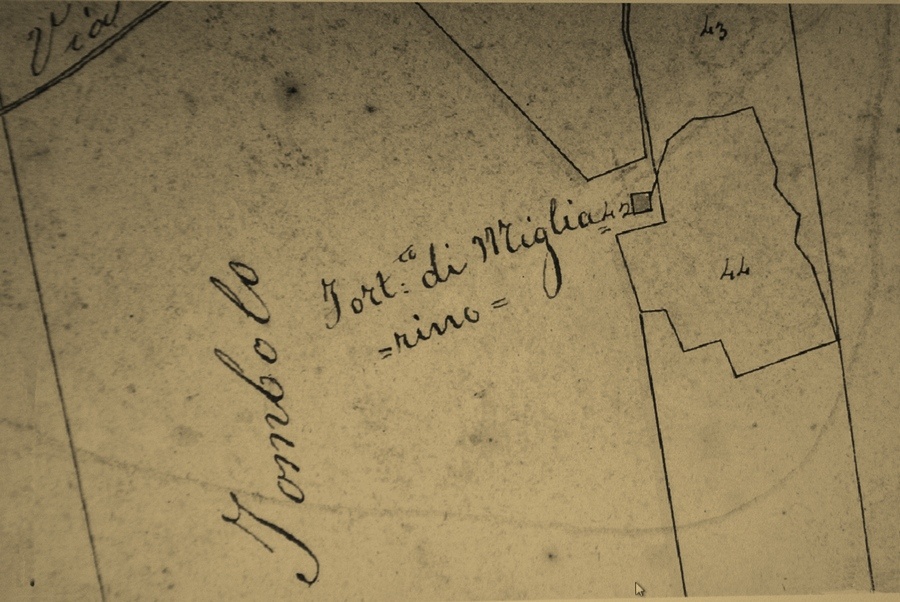 Via
43
Fort:ᶜᵃ di Miglia=
=rino=
42
44
Tombolo